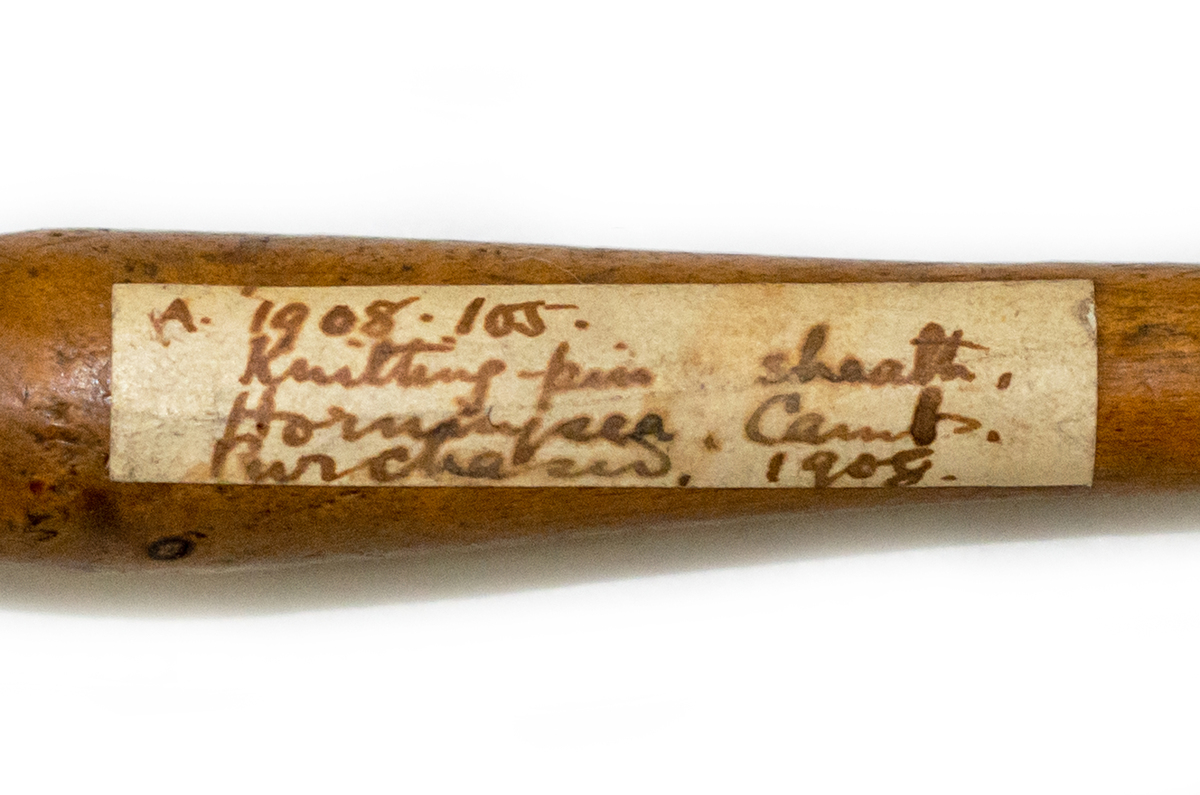 A. 1908.105.
Knitting-pin sheath.
Horningsea, Camb.
Purchased, 1908.